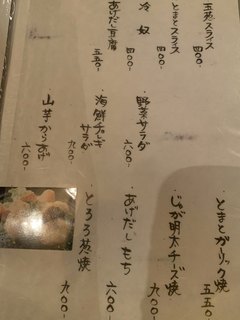 玉葱スライス
四〇〇-
とまとスライス
四〇〇-
冷奴
四〇〇-
あげだし豆腐
五五〇-
野菜サラダ
六〇〇-
海鮮チョレギ
サラダ
九〇〇-
山芋からあげ
六〇〇-
とまとガーリック焼
五五〇-
じゃが明太チーズ焼
九〇〇-
あげだしもち
六〇〇-
とろろ葱焼
九〇〇-